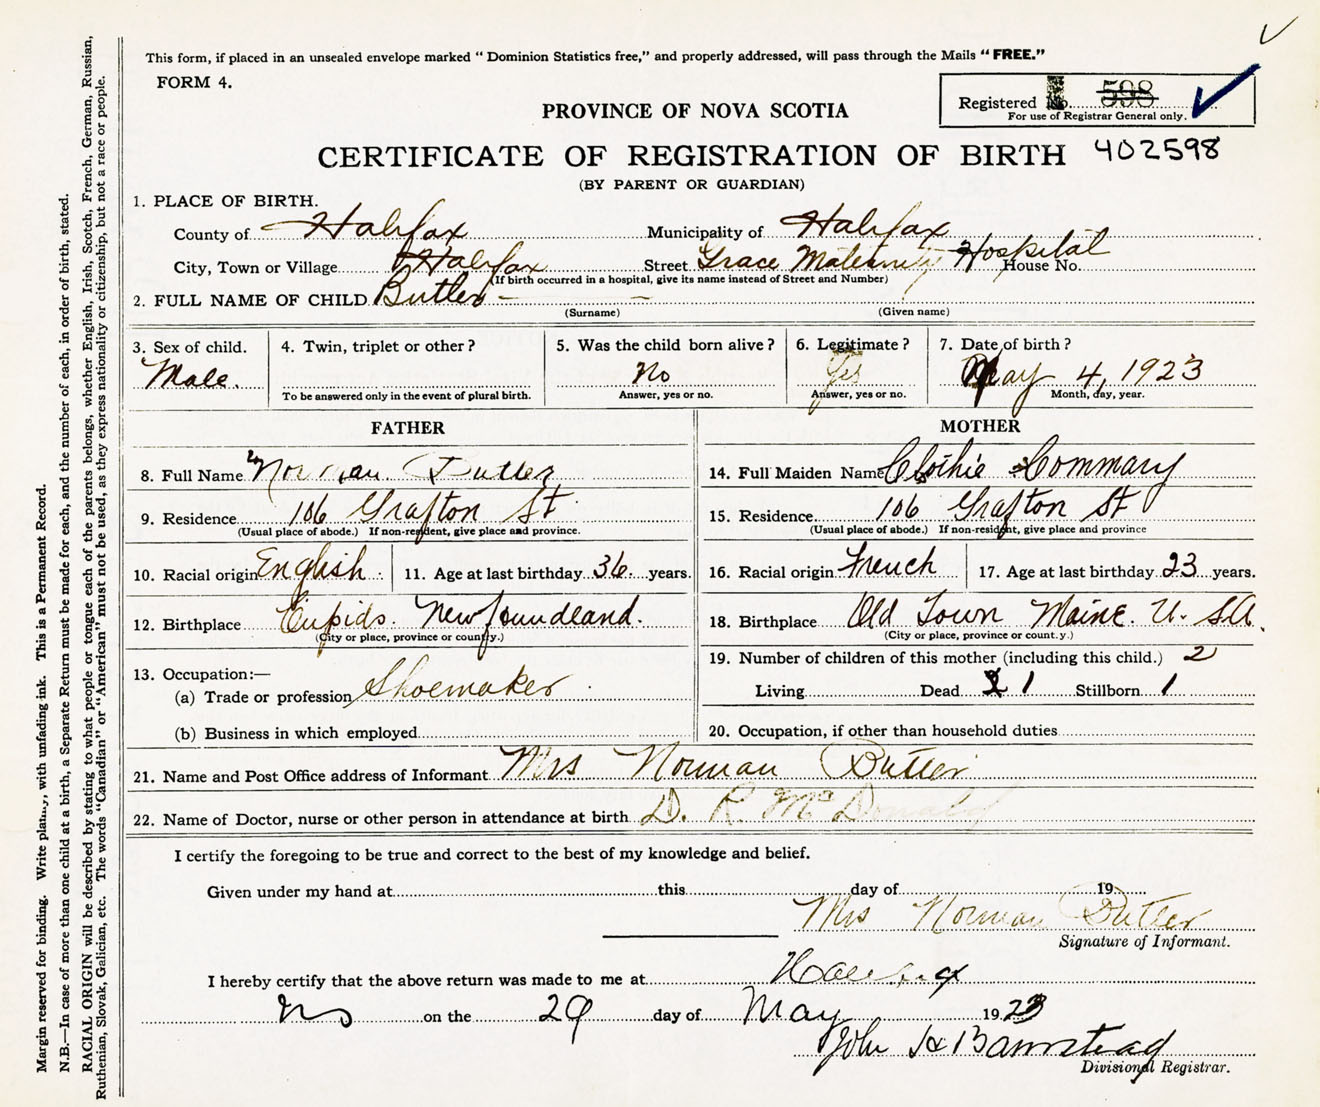 This form, if placed in an unsealed envelope marked " Dominion Statistics free," and properly addressed, will pass through the Mails "FREE."
FORM 4.
Registered No. 598
For use of Registrar General only.
PROVINCE OF NOVA SCOTIA
CERTIFICATE OF REGISTRATION OF BIRTH 402598
(BY PARENT OR GUARDIAN)
1. PLACE OF BIRTH.
County of Halifax Municipality of Halifax
City, Town or Village Halifax Street Grace Maternity Hospital House No.
(If birth occurred in a hospital, give its name instead of Street and Number)
2. FULL NAME OF CHILD Butler - -
(Surname) (Given name)
3. Sex of child. 4. Twin, triplet or other ? 5. Was the child born alive ? 6. Legitimate ? 7. Date of birth ?
Male. No Yes May 4, 1923
To be answered only in the event of plural birth. Answer, yes or no. Answer, yes or no. Month, day, year.
FATHER
8. Full Name Norman Butler
9. Residence 106 Grafton St
(Usual place of abode.) If non-resident, give place and province.
10. Racial origin English. 11. Age at last birthday 36. years.
12. Birthplace Cupids. Newfoundland.
(City or place, province or county.)
13. Occupation:—
(a) Trade or profession Shoemaker
(b) Business in which employed
MOTHER
14. Full Maiden Name Commary
15. Residence 106 Grafton St
(Usual place of abode.) If non-resident, give place and province
16. Racial origin French 17. Age at last birthday 23 years.
18. Birthplace Old Town Maine. U. S.A.
(City or place, province or count.y.)
19. Number of children of this mother (including this child.) 2
Living Dead 1 Stillborn 1
20. Occupation, if other than household duties
21. Name and Post Office address of Informant Mrs Norman Butler
22. Name of Doctor, nurse or other person in attendance at birth D. R. McDonald
I certify the foregoing to be true and correct to the best of my knowledge and belief.
Given under my hand at this day of 19
Mrs Norman Butler
Signature of Informant.
I hereby certify that the above return was made to me at Halifax
NS on the 29 day of May 1923
John H Barnstead
Divisional Registrar.
Margin reserved for binding. Write plainly, with unfading ink. This is a Permanent Record.
N.B.—In case of more than one child at a birth, a Separate Return must be made for each, and the number of each, in order of birth, stated.
RACIAL ORIGIN will be described by stating to what people or tongue each of the parents belongs, whether English, Irish, Scotch, French, German, Russian,
Ruthenian, Slovak, Galician, etc. The words "Canadian" or "American" must not be used, as they express nationality or citizenship, but not a race or people.